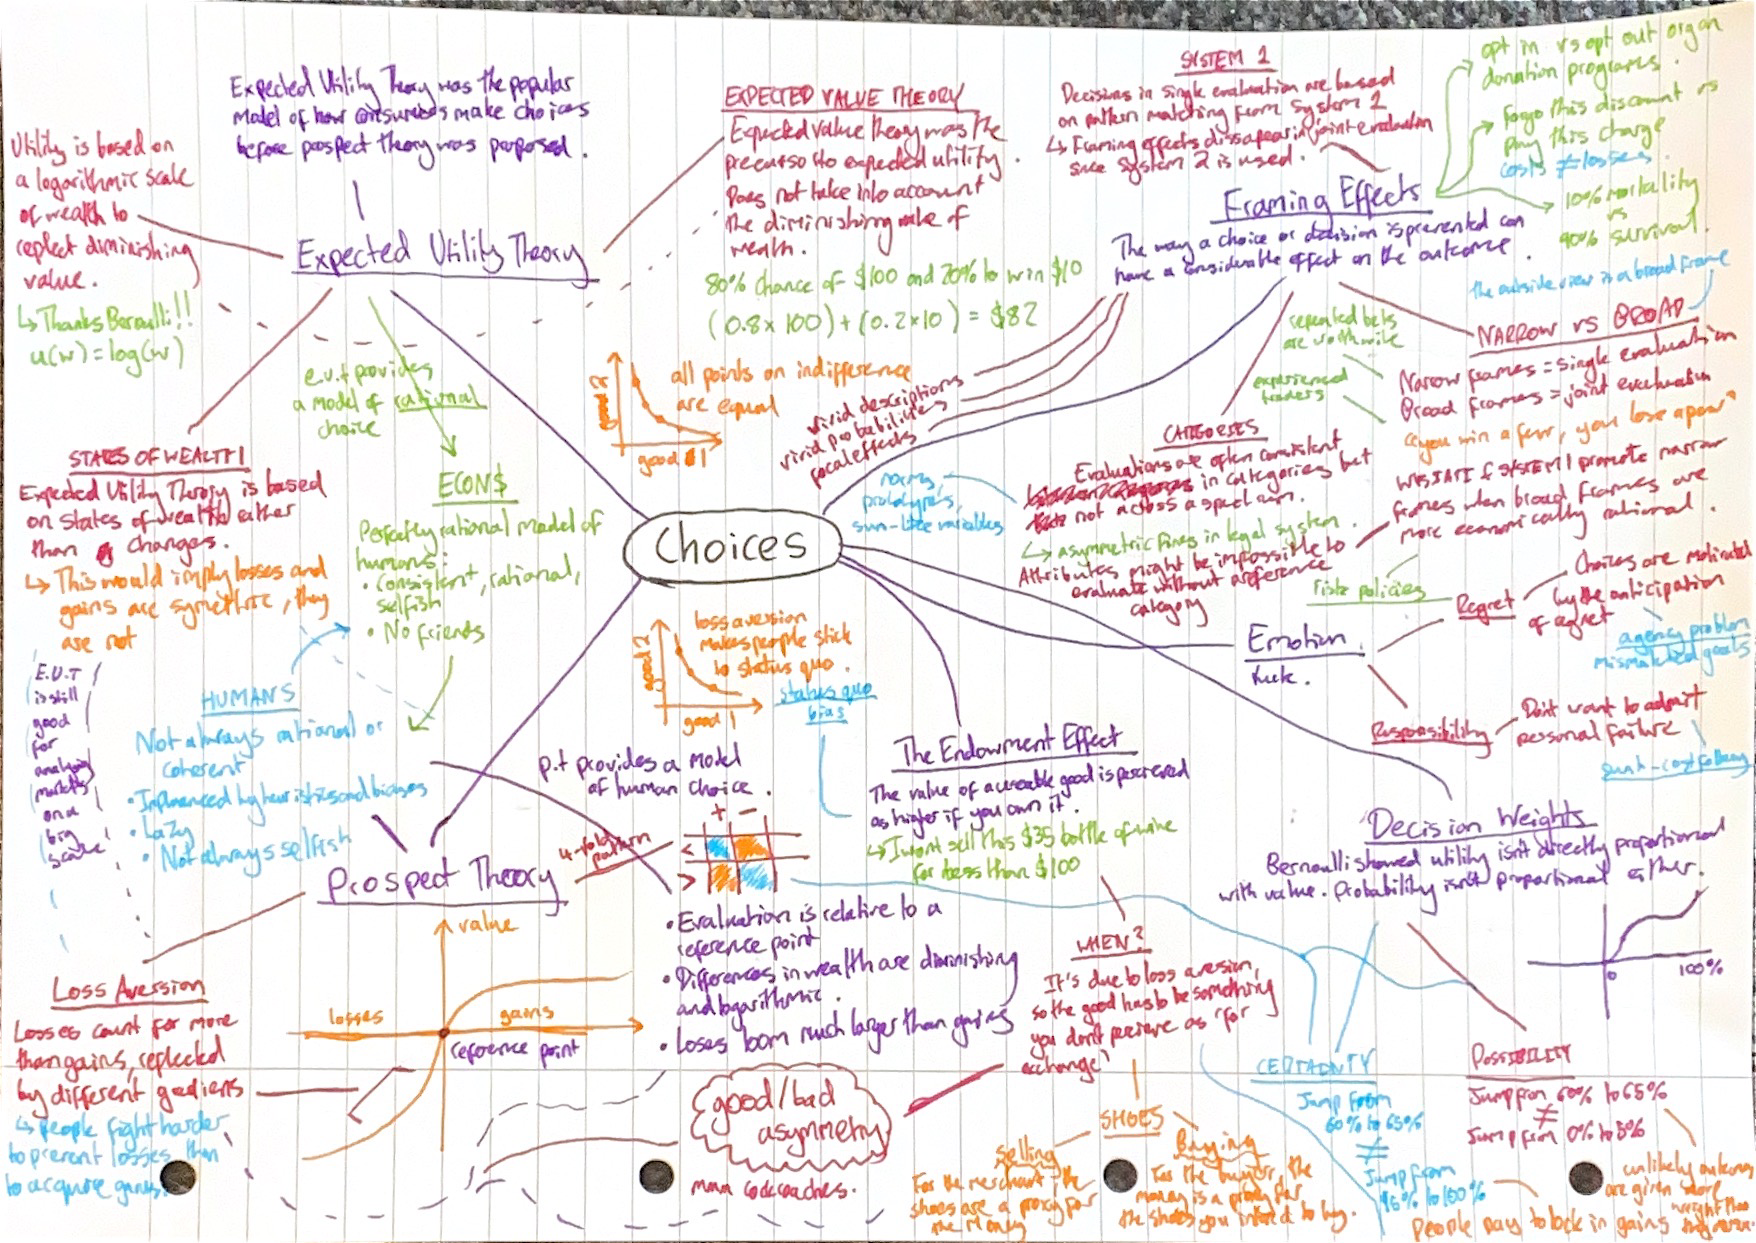 Expected Utility Theory was the popular
model of how consumers make choices
before prospect theory was proposed.
Utility is based on
a logarithmic scale
of wealth to
reflect diminishing
value.
↳ Thanks Bernoulli!!
u(w) = log(w)
Expected Utility Theory
EXPECTED VALUE THEORY
Expected value theory was the
precursor to expected utility.
Does not take into account
the diminishing value of
wealth.
80% chance of $100 and 20% to win $10
(0.8 x 100) + (0.2 x 10) = $82
SYSTEM 1
Decisions in single evaluation are based
on pattern matching from System 1
↳ Framing effects dissapear in joint evaluation
since System 2 is used.
opt in vs opt out organ
donation programs.
Forgo this discount vs
pay this charge
costs ≠ losses
10% mortality
vs
90% survival.
Framing Effects
The way a choice or decision is presented can
have a considerable effect on the outcome.
the outside view is a broad frame
NARROW VS BROAD
Narrow frames = single evaluation
Broad frames = joint evaluation
"you win a few, you lose a few"
WYSIATI & SYSTEM 1 promote narrow
frames when broad frames are
more economically rational.
repeated bets
are worthwhile
experienced
traders
risk policies
e.u.t provides
a model of rational
choice
good 2
good 1
all points on indifference
are equal
vivid descriptions
vivid probabilities
focal effects
CATEGORIES
Evaluations are often consistent
in categories but
not across a spectrum.
↳ asymmetric fines in legal system.
Attributes might be impossible to
evaluate without a reference
category
norms,
prototypes,
sum-like variables
STATES OF WEALTH
Expected Utility Theory is based
on states of wealth either
than changes.
↳ This would imply losses and
gains are symethric, they
are not
ECONS
Perfectly rational model of
humans:
• Consistent, rational,
selfish
• No friends
Choices
good 2
good 1
loss aversion
makes people stick
to status quo.
status quo
bias
Emotion
Regret
Choices are motivated
by the anticipation
of regret
agency problem
mismatched goals
Responsibility
Don't want to admit
personal failure
sunk-cost fallacy
E.U.T
is still
good
for
analysing
markets
on a
big
scale
HUMANS
Not always rational or
coherent
• Influenced by heuristics and biases
• Lazy
• Not always selfish
p.t provides a model
of human choice.
The Endowment Effect
as higher if you own it.
↳ I wont sell this $35 bottle of wine
for less than $100
Decision Weights
Bernoulli showed utility isn't directly proportional
with value. Probability isn't proportional either.
0
100%
Prospect Theory
4-fold
pattern
+ -
<
>
• Evaluation is relative to a
reference point
• Differences in wealth are diminishing
and logarithmic.
• Loses loom much larger than gains
value
losses
gains
reference point
Loss Aversion
Losses count for more
than gains, reflected
by different gradients
↳ people fight harder
to prevent losses than
to acquire gains.
good/bad
asymmetry
WHEN?
It's due to loss aversion,
so the good has to be something
you don't perceive as 'for
exchange'
SHOES
Selling
For the merchant, the
shoes are a proxy for
the money
Buying
For the buyer, the
money is a proxy for
the shoes you intend to buy.
CERTAINTY
Jump from
60% to 65%
≠
Jump from
95% to 100%
People pay to lock in gains
POSSIBILITY
Jump from 60% to 65%
≠
Jump from 0% to 5%
unlikely outcomes
are given more
weight than